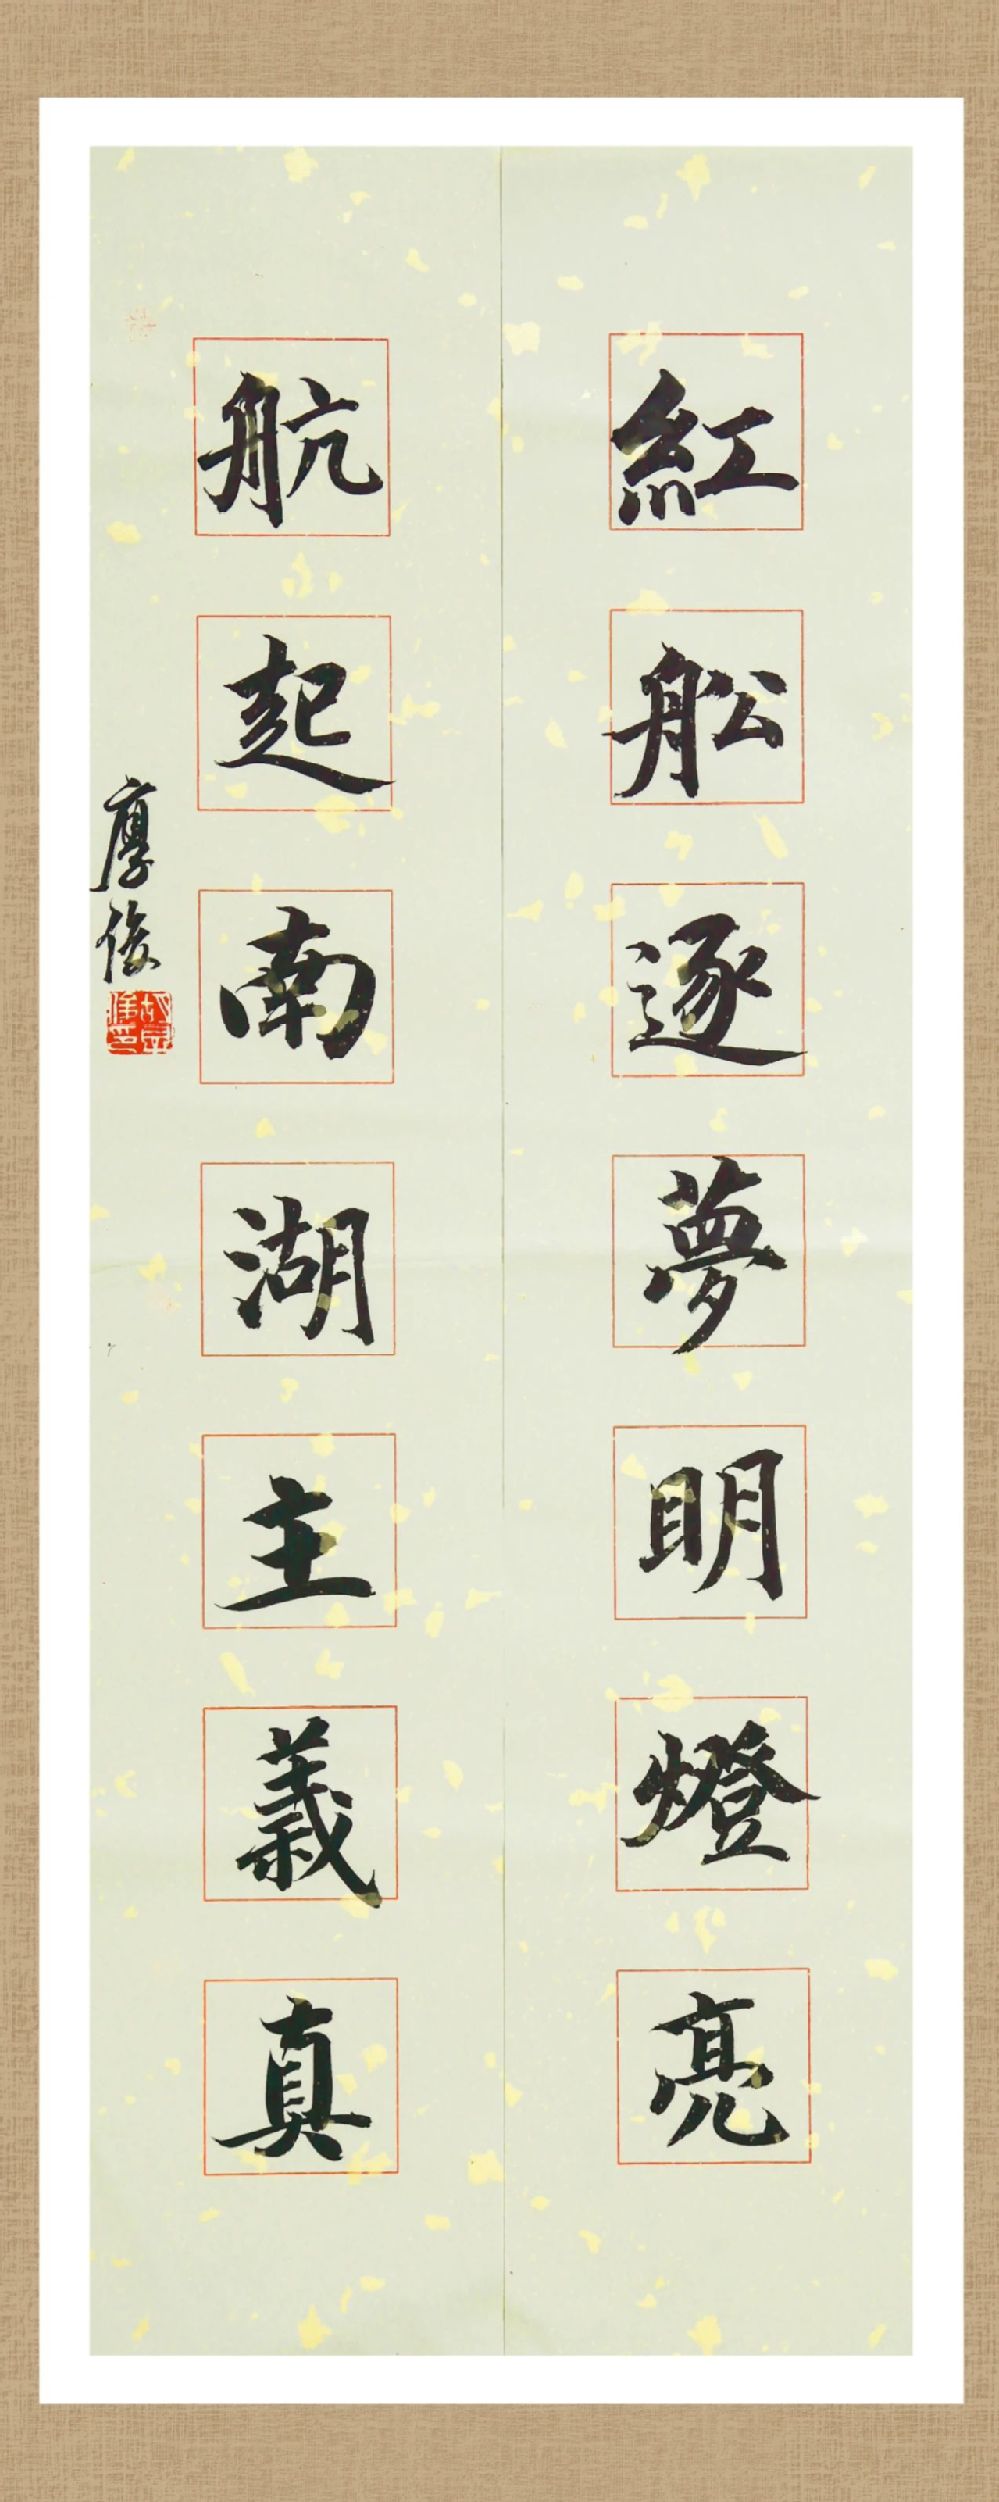 紅舩逐夢明燈亮
航起南湖主義真
厚俊